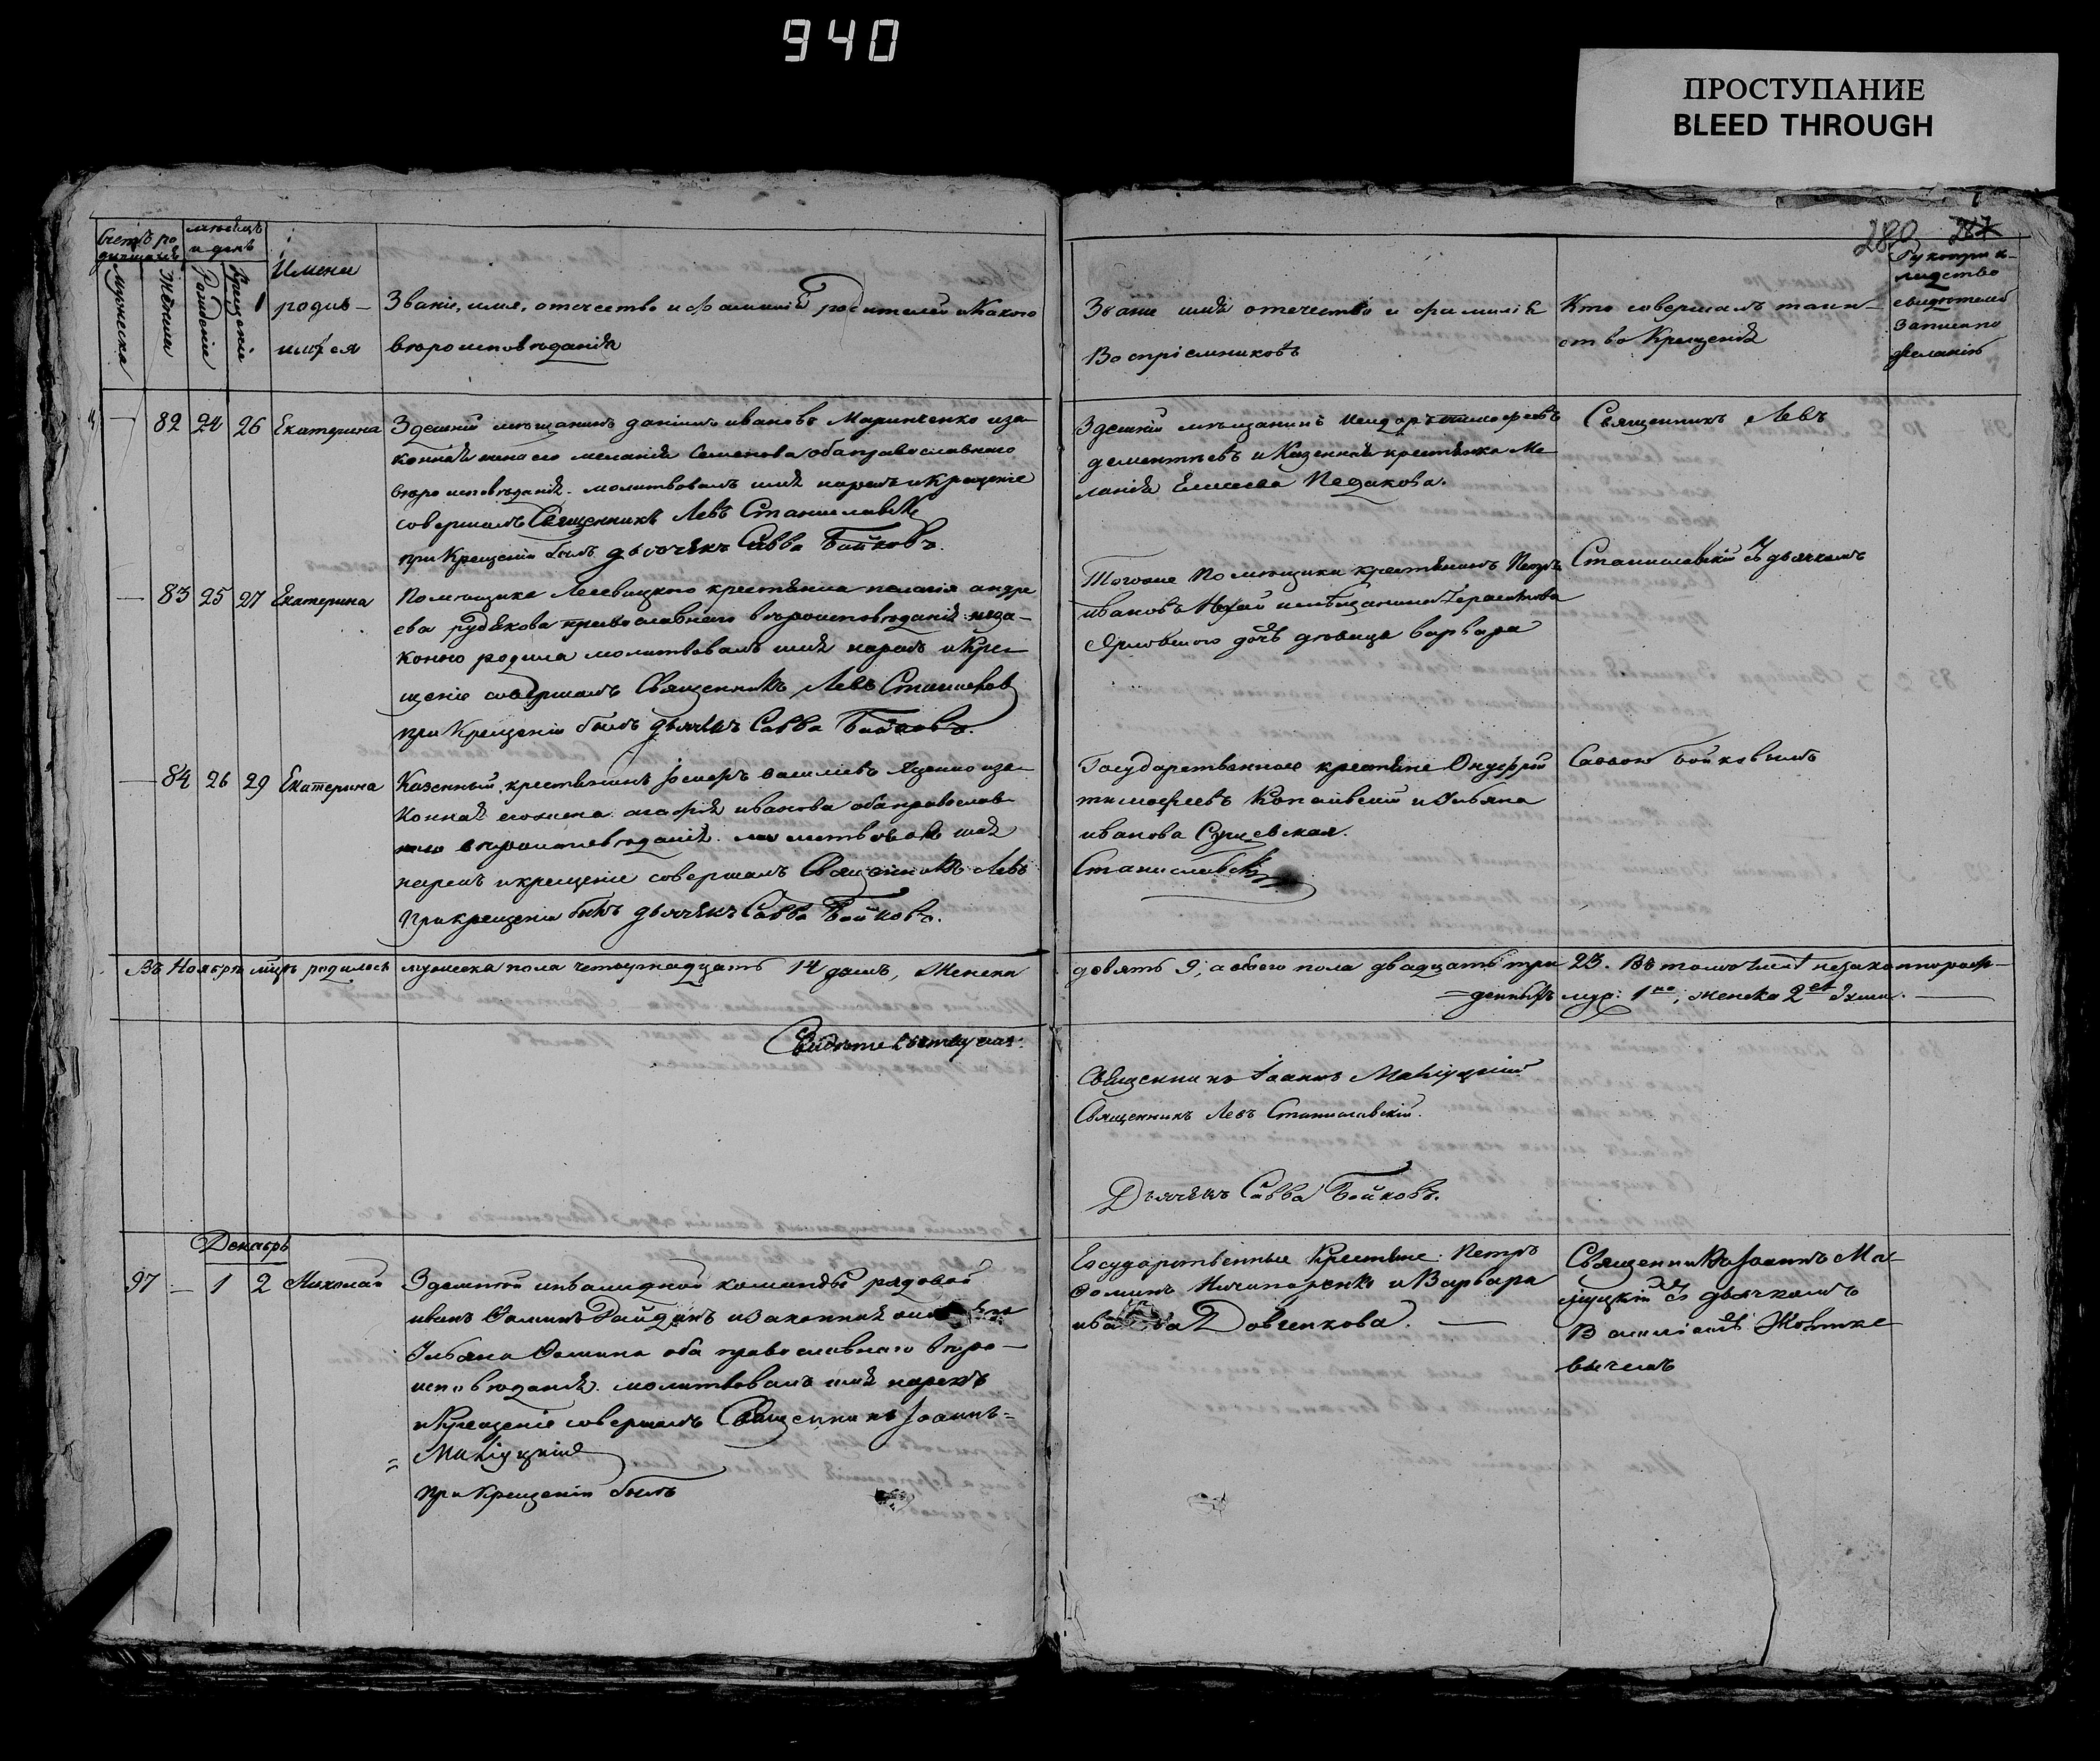 940
ПРОСТУПАНИЕ
BLEED THROUGH
289
Счетъ ро
дившихся
мѣсяцъ
и день
Мужеска
Женска
Рожденія
Крещенія
Имена
родив-
шихся
Званіе, имя, отечество и фамилія родителей и какого
вѣроисповѣданія
Званіе имя отечество и фамилія
Воспріемниковъ
Кто совершалъ таин-
ство Крещенія
Рукоприк-
ладство
свидѣтелей
записи по
желанію
82 24 26 Екатерина
Здешній мѣщанинъ даніилъ ивановъ Маринченко иза-
конная жена его меланія Семенова оба православнаго
вѣроисповѣданія. молитвовалъ имя нарекъ и Крещеніе
совершалъ Священникъ Левъ Станиславскій
при Крещеніи былъ дьячекъ Савва Бойковъ.
Здешній мѣщанинъ тимофеевъ
дементьевъ и Казенная крестьянка Ме
ланія Елисеева Педакова.
Священникъ Левъ
83 25 27 Екатерина
Помещика крестьянка пелагія андре
ева рудякова православнаго вѣроисповѣданія неза-
конно родила молитвовалъ имя нарекъ и Кре-
щеніе совершалъ Священникъ Левъ
при Крещеніи былъ дьячекъ Савва Бойковъ.
Тогоже Помѣщика крестьянинъ Петръ
ивановъ и мѣщанина Герасимова
дочь дѣвица варвара
Станиславскій съ дьячкомъ
84 26 29 Екатерина
Казенный крестьянинъ Іосифъ василіевъ Яценко иза-
конная его жена агафія иванова оба православ-
наго вѣроисповѣданія. молитвовалъ имя
нарекъ и крещеніе совершалъ Священникъ Левъ
При крещеніи былъ дьячекъ Савва Бойковъ.
Государственные крестьяне Онуфрій
тимофеевъ и Ульяна
иванова Сушевская.
Станиславскій
Саввою Бойковымъ
Въ Ноябрѣ мцѣ родилось мужеска пола четырнадцать 14 душъ, Женска
девять 9, а обоего пола двадцать три 23. Въ томъ числѣ незаконнорож-
=денныхъ муж: 1 но, женска 2 ет
Свидѣтельствуемъ:
Священникъ Іоаннъ
Священникъ Левъ Станиславскій.
Дьячекъ Савва Бойковъ.
Декабрь
97 - 1 2 Николай
Здешней инвалидной команды рядовой
иванъ Фоминъ и законная его жена
Ульяна Фомина оба православнаго вѣро-
исповѣданія. молитвовалъ имя нарекъ
и Крещеніе совершалъ Священникъ Іоаннъ=
=
При Крещеніи былъ
Государственные Крестьяне: Петръ
Фоминъ Ничипоренко и Варвара
иванова Довгенкова.
Священникъ Іоаннъ Ма-
съ дьячкомъ
Василіемъ
вичемъ